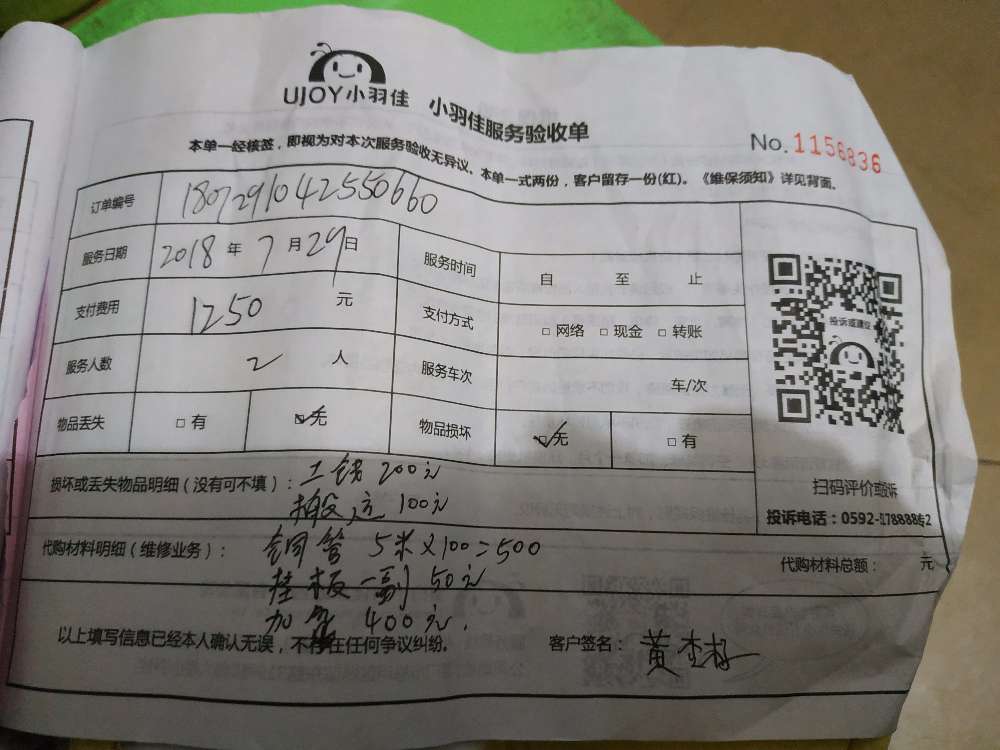 UJOY小羽佳 小羽佳服务验收单
No. 1156836
本单一经核签，即视为对本次服务验收无异议。本单一式两份，客户留存一份(红)。《维保须知》详见背面。
订单编号 180729104255066​0
服务日期 2018 年 7 月 29 日 服务时间 自 至 止
支付费用 1250 元 支付方式 □ 网络 □ 现金 □ 转账
投诉或建议
服务人数 2 人 服务车次 车/次
物品丢失 □ 有 ☑ 无 物品损坏 ☑ 无 □ 有
扫码评价或投诉
损坏或丢失物品明细（没有可不填）： 工钱 200元
投诉电话：0592-
搬运 100元
代购材料明细（维修业务）： 铜管 5米×100=500
代购材料总额： 元
挂板一副 50元
加氟 400元.
以上填写信息已经本人确认无误，不存在任何争议纠纷。 客户签名： 黄